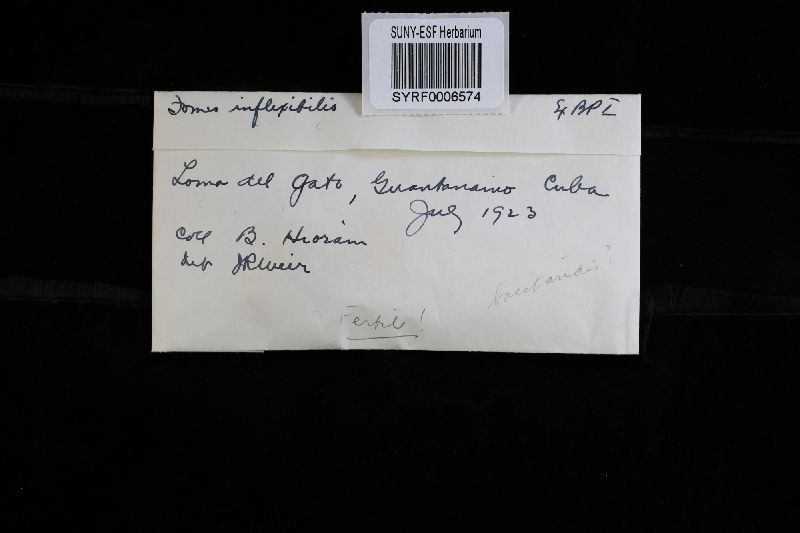 SUNY-ESF Herbarium
SYRF0006574
Fomes inflexibilis Ex BPI
Loma del Gato, Guantanamo Cuba
July 1923
Coll B. Hioram
det JRWeir
Fertile!